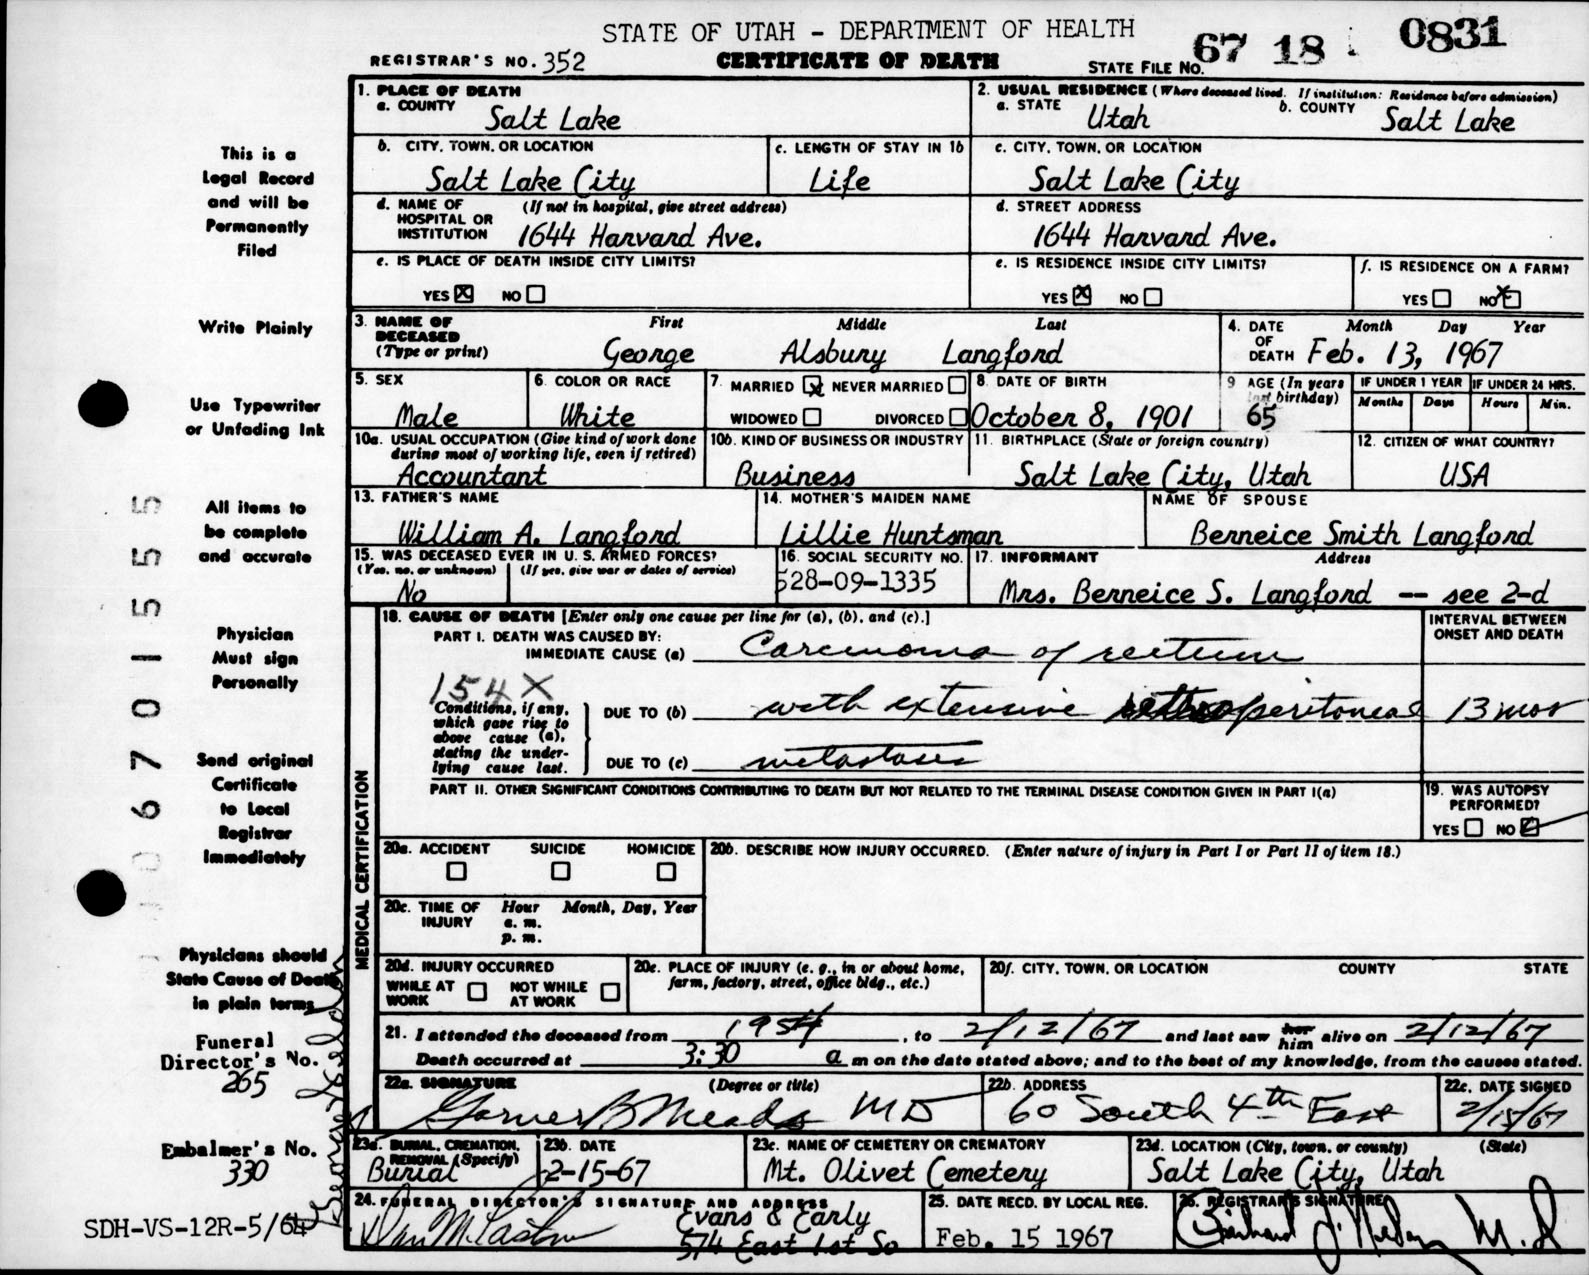 STATE OF UTAH - DEPARTMENT OF HEALTH
REGISTRAR'S NO. 352 CERTIFICATE OF DEATH STATE FILE NO. 67 18 0831
1. PLACE OF DEATH
a. COUNTY Salt Lake
2. USUAL RESIDENCE (Where deceased lived. If institution: Residence before admission)
a. STATE Utah b. COUNTY Salt Lake
b. CITY, TOWN, OR LOCATION Salt Lake City
c. LENGTH OF STAY IN 1b Life
c. CITY, TOWN, OR LOCATION Salt Lake City
d. NAME OF HOSPITAL OR INSTITUTION (If not in hospital, give street address) 1644 Harvard Ave.
d. STREET ADDRESS 1644 Harvard Ave.
e. IS PLACE OF DEATH INSIDE CITY LIMITS?
YES X NO
e. IS RESIDENCE INSIDE CITY LIMITS?
YES X NO
f. IS RESIDENCE ON A FARM?
YES NO X
3. NAME OF DECEASED (Type or print) First Middle Last
George Alsbury Langford
4. DATE OF DEATH Month Day Year
Feb. 13, 1967
5. SEX Male
6. COLOR OR RACE White
7. MARRIED X NEVER MARRIED
WIDOWED DIVORCED
8. DATE OF BIRTH October 8, 1901
9 AGE (In years last birthday) 65
IF UNDER 1 YEAR Months Days
IF UNDER 24 HRS. Hours Min.
10a. USUAL OCCUPATION (Give kind of work done during most of working life, even if retired)
Accountant
10b. KIND OF BUSINESS OR INDUSTRY
Business
11. BIRTHPLACE (State or foreign country)
Salt Lake City, Utah
12. CITIZEN OF WHAT COUNTRY?
USA
13. FATHER'S NAME
William A. Langford
14. MOTHER'S MAIDEN NAME
Lillie Huntsman
NAME OF SPOUSE
Berneice Smith Langford
15. WAS DECEASED EVER IN U. S. ARMED FORCES?
(Yes, no, or unknown) (If yes, give war or dates of service)
No
16. SOCIAL SECURITY NO.
528-09-1335
17. INFORMANT Address
Mrs. Berneice S. Langford -- see 2-d
MEDICAL CERTIFICATION
18. CAUSE OF DEATH [Enter only one cause per line for (a), (b), and (c).]
INTERVAL BETWEEN ONSET AND DEATH
PART I. DEATH WAS CAUSED BY:
IMMEDIATE CAUSE (a) Carcinoma of rectum
154 X
Conditions, if any, which gave rise to above cause (a), stating the underlying cause last.
DUE TO (b) with extensive retroperitoneal 13 mos
DUE TO (c) metastases
PART II. OTHER SIGNIFICANT CONDITIONS CONTRIBUTING TO DEATH BUT NOT RELATED TO THE TERMINAL DISEASE CONDITION GIVEN IN PART I(a)
19. WAS AUTOPSY PERFORMED?
YES NO
20a. ACCIDENT SUICIDE HOMICIDE
20b. DESCRIBE HOW INJURY OCCURRED. (Enter nature of injury in Part I or Part II of item 18.)
20c. TIME OF INJURY Hour Month, Day, Year
a. m.
p. m.
20d. INJURY OCCURRED
WHILE AT WORK NOT WHILE AT WORK
20e. PLACE OF INJURY (e. g., in or about home, farm, factory, street, office bldg., etc.)
20f. CITY, TOWN, OR LOCATION COUNTY STATE
21. I attended the deceased from 1954, to 2/12/67 and last saw her him alive on 2/12/67
Death occurred at 3:30 a m on the date stated above; and to the best of my knowledge, from the causes stated.
22a. SIGNATURE (Degree or title)
Garner B Meads MD
22b. ADDRESS
60 South 4th East
22c. DATE SIGNED
2/15/67
23a. BURIAL, CREMATION, REMOVAL (Specify)
Burial
23b. DATE
2-15-67
23c. NAME OF CEMETERY OR CREMATORY
Mt. Olivet Cemetery
23d. LOCATION (City, town, or county) (State)
Salt Lake City, Utah
24. FUNERAL DIRECTOR'S SIGNATURE AND ADDRESS
Evans & Early
574 East 1st So
25. DATE RECD. BY LOCAL REG.
Feb. 15 1967
26. REGISTRAR'S SIGNATURE
M.D
This is a
Legal Record
and will be
Permanently
Filed
Write Plainly
Use Typewriter
or Unfading Ink
All items to
be complete
and accurate
Physician
Must sign
Personally
Send original
Certificate
to Local
Registrar
Immediately
Physicians should
State Cause of Death
in plain terms
Funeral
Director's No.
265
Embalmer's No.
330
SDH-VS-12R-5/64
67015555